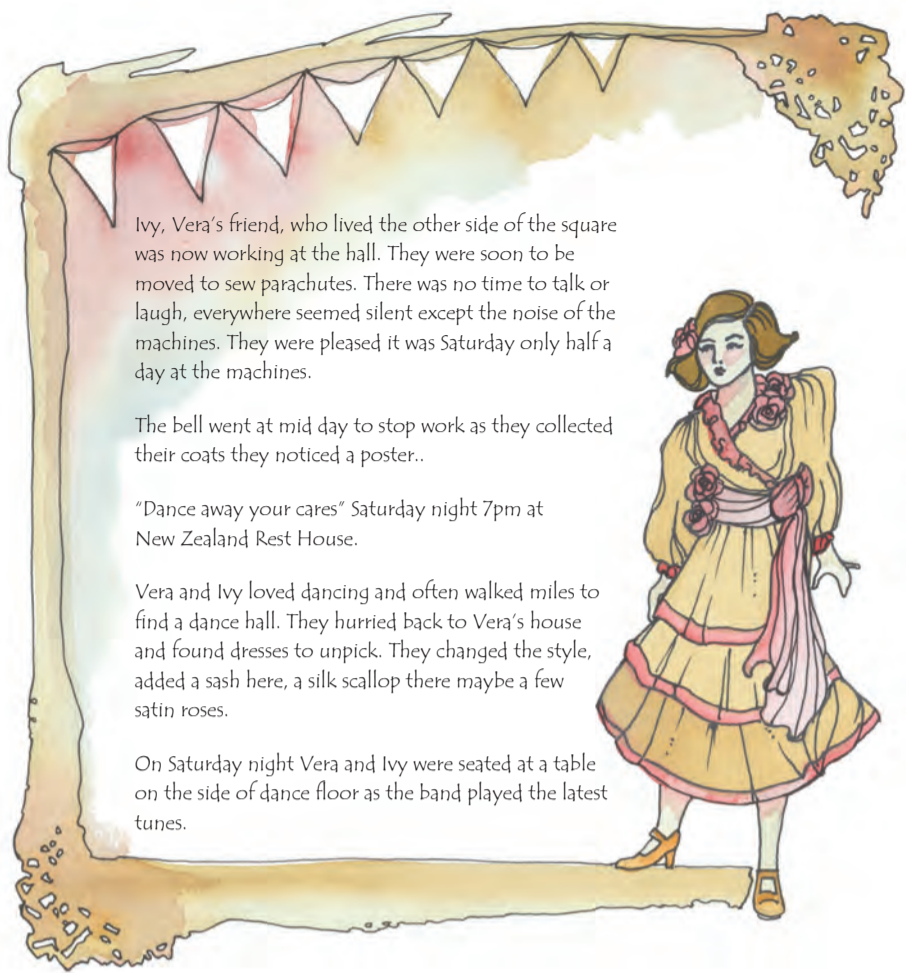 Ivy, Vera's friend, who lived the other side of the square
was now working at the hall. They were soon to be
moved to sew parachutes. There was no time to talk or
laugh, everywhere seemed silent except the noise of the
machines. They were pleased it was Saturday only half a
day at the machines.
The bell went at mid day to stop work as they collected
their coats they noticed a poster..
"Dance away your cares" Saturday night 7pm at
New Zealand Rest House.
Vera and Ivy loved dancing and often walked miles to
find a dance hall. They hurried back to Vera's house
and found dresses to unpick. They changed the style,
added a sash here, a silk scallop there maybe a few
satin roses.
On Saturday night Vera and Ivy were seated at a table
on the side of dance floor as the band played the latest
tunes.